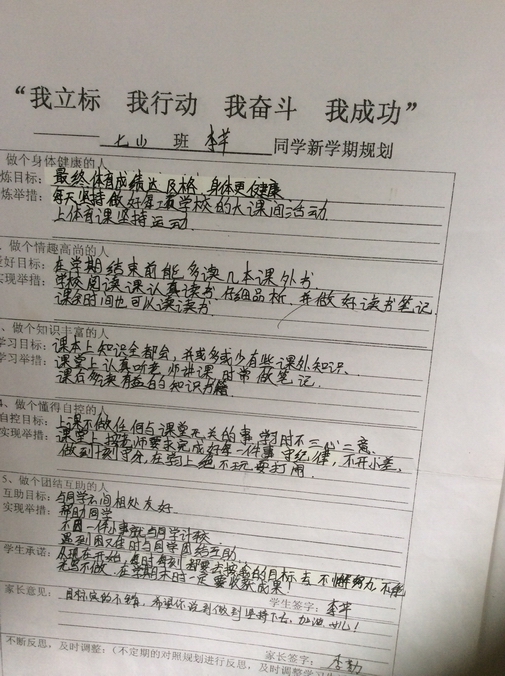 “我立标 我行动 我奋斗 我成功”
班 李苹 同学新学期规划
做个身体健康的人
炼目标: 最终体育成绩达及格, 身体更健康.
炼举措: 每天坚持做好 学校的大课间活动
上体育课坚持运动.
、做个情趣高尚的人
爱好目标: 在学期结束前能多读几本课外书.
实现举措: 学校阅读课认真读书, 仔细品析, 并做好读书笔记.
课余时间也可以读读书.
、做个知识丰富的人
学习目标: 课本上知识全都会, 并或多或少有些课外知识.
学习举措: 课堂上认真听老师讲课, 时常做笔记.
课后多读有益的知识书籍
4、做个懂得自控的人
自控目标: 上课不做任何与课堂无关的事, 学习时不三心二意.
实现举措: 课堂上按老师要求完成好每一件事, 守纪律, 不开小差,
做到十刻守分, 在 上绝不玩耍打闹.
5、做个团结互助的人
互助目标: 与同学之间相处友好.
实现举措: 帮助同学.
不因一件小事就与同学计较.
遇到困难时与同学团结互助.
学生承诺: 从现在开始, 每时每刻都要去按着的目标去 不懈努力, 不能
光写不做. 在学期末时一定要收获成果!
学生签字: 李苹
家长意见: 目标定的不错, 希望你说到做到坚持下去, 加油
家长签字: 李勤
不断反思, 及时调整: (不定期的对照规划进行反思, 及时调整学习